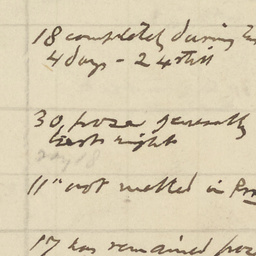 18 completely during
4 days - 24 still
30, froze generally
last night
11" not melted in
17 has remained froz